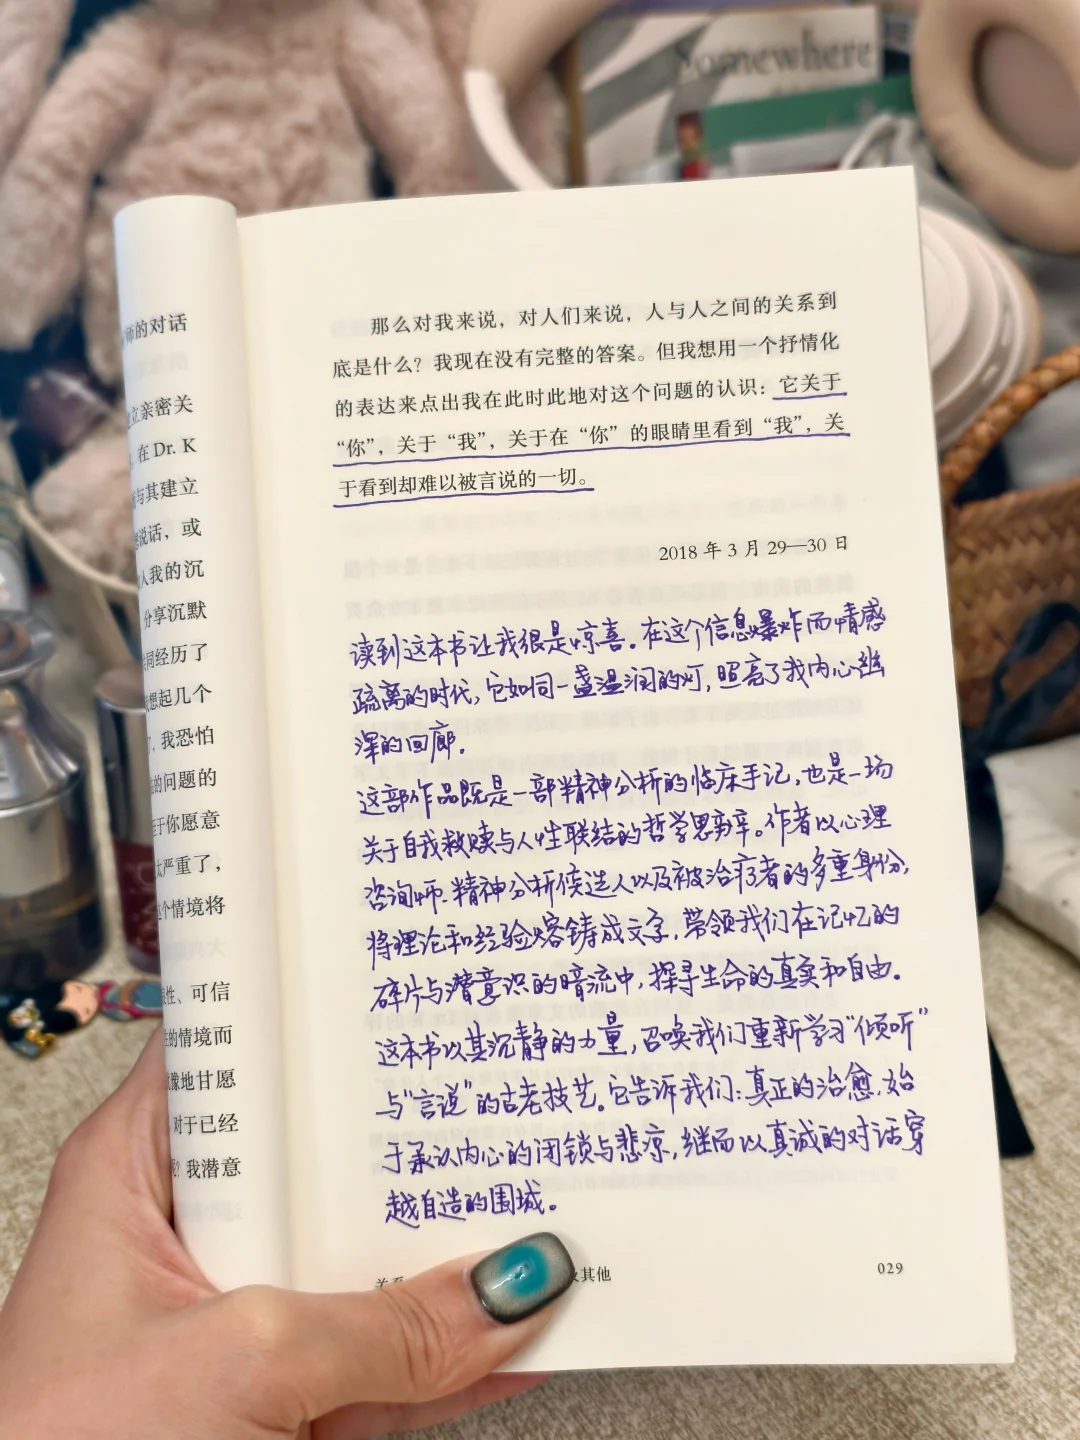 Somewhere
师的对话
立亲密关
在 Dr. K
与其建立
说话，或
人我的沉
分享沉默
同经历了
想起几个
，我恐怕
的问题的
于你愿意
太严重了，
个情境将
性、可信
的情境而
豫地甘愿
对于已经
？我潜意
那么对我来说，对人们来说，人与人之间的关系到
底是什么？我现在没有完整的答案。但我想用一个抒情化
的表达来点出我在此时此地对这个问题的认识：它关于
“你”，关于“我”，关于在“你”的眼睛里看到“我”，关
于看到却难以被言说的一切。
2018 年 3 月 29—30 日
读到这本书让我很是惊喜。在这个信息爆炸而情感
疏离的时代，它如同一盏温润的灯，照亮了我内心幽
深的回廊。
这部作品既是一部精神分析的临床手记，也是一场
关于自我救赎与人性联结的哲学思辨。作者以心理
咨询师、精神分析候选人以及被治疗者的多重身份，
将理论和经验熔铸成文字，带领我们在记忆的
碎片与潜意识的暗流中，探寻生命的真实和自由。
这本书以其沉静的力量，召唤我们重新学习“倾听”
与“言说”的古老技艺。它告诉我们：真正的治愈，始
于承认内心的闭锁与悲凉，继而以真诚的对话穿
越自造的围城。
其他
029